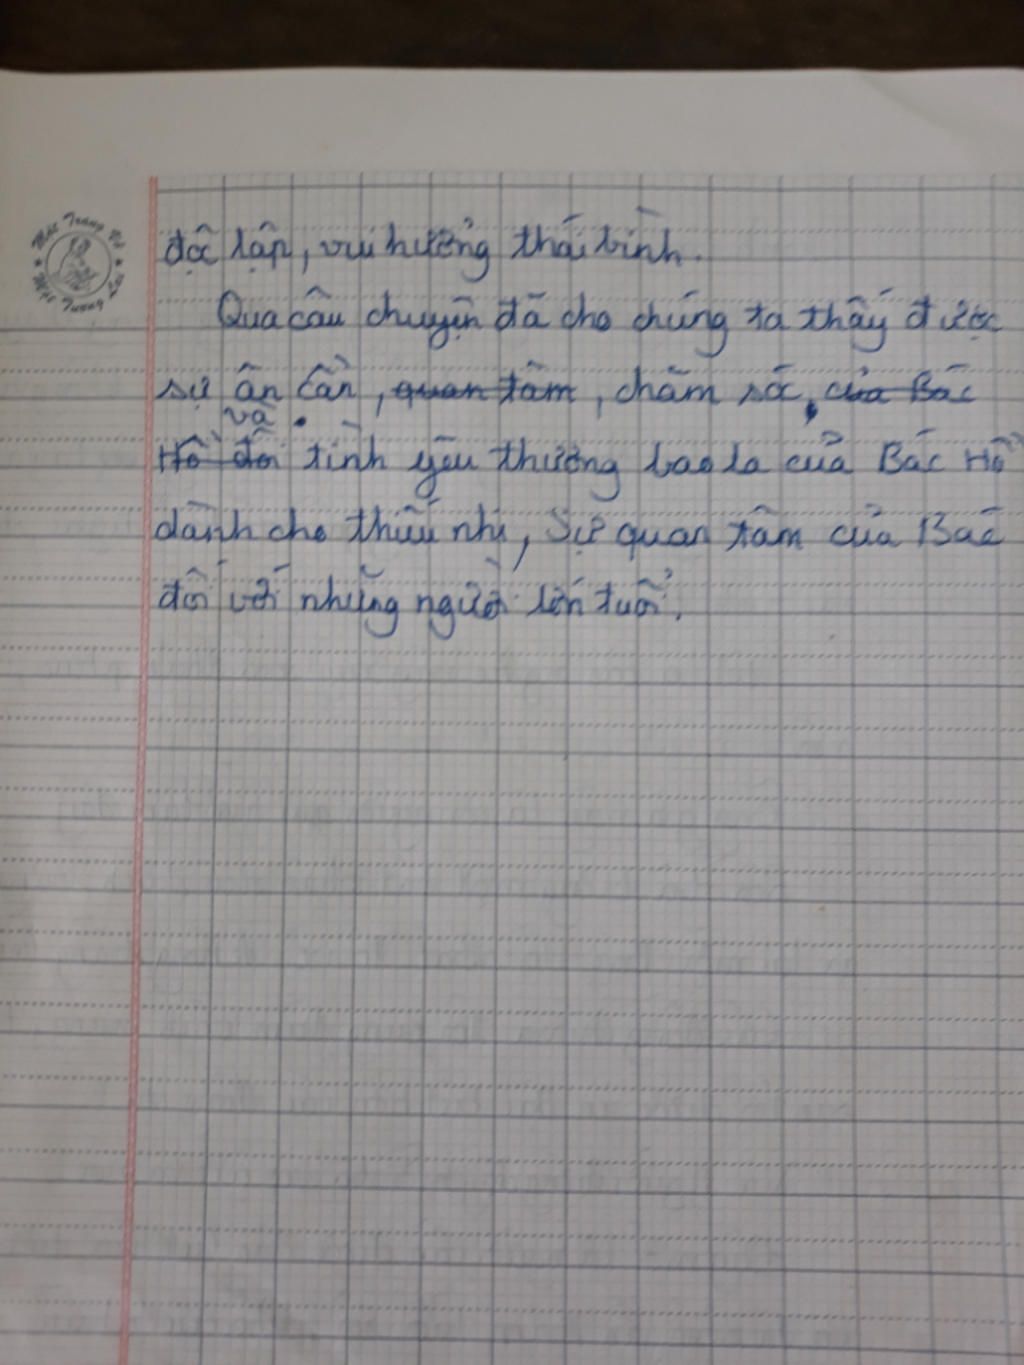 độc lập, vui hưởng thái bình.
Qua câu chuyện đã cho chúng ta thấy được
sự ân cần, quan tâm, chăm sóc, của Bác
và
Hồ đối tình yêu thương bao la của Bác Hồ
dành cho thiếu nhi, sự quan tâm của Bác
đối với những người lớn tuổi.